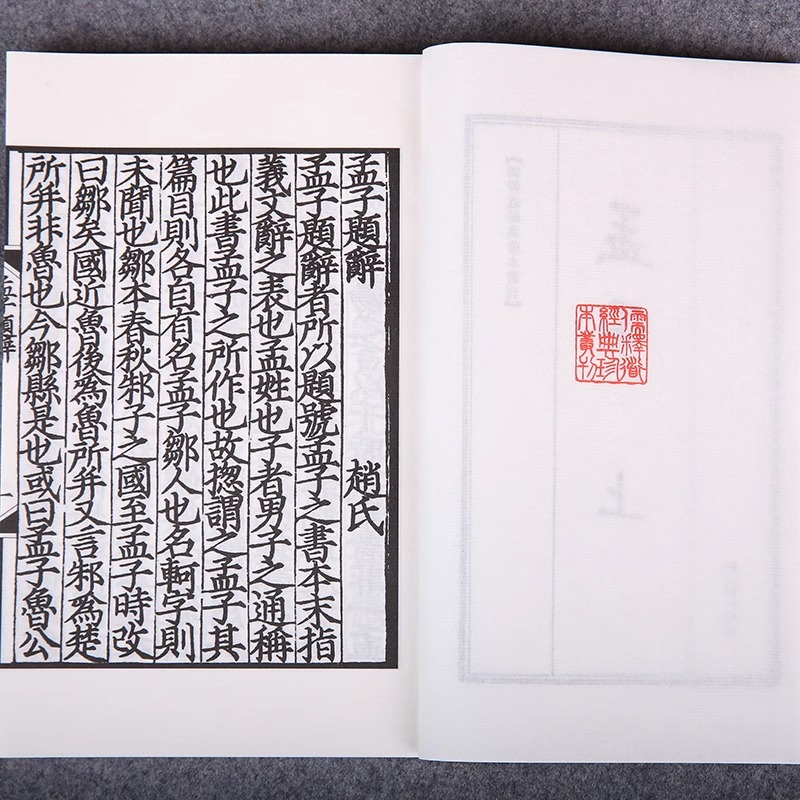 儒釋道
經典珍
本叢刊
孟子題辭 趙氏
孟子題辭者所以題號孟子之書本末指
義文辭之表也孟姓也子者男子之通稱
也此書孟子之所作也故揔謂之孟子其
篇目則各自有名孟子鄒人也名軻字則
未聞也鄒本春秋邾子之國至孟子時改
曰鄒矣國近魯後爲魯所并又言邾爲楚
所并非魯也今鄒縣是也或曰孟子魯公